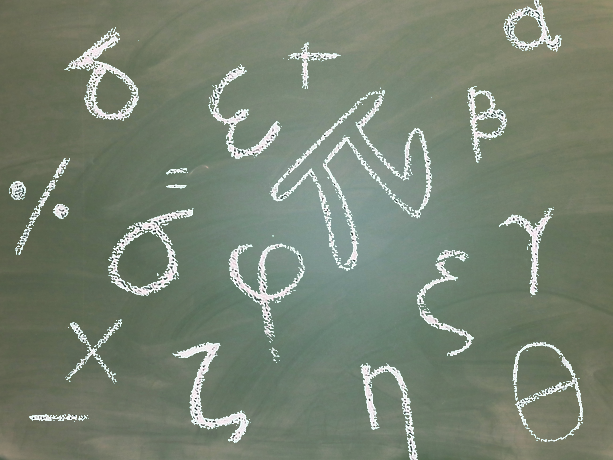 δ ε + α
π β
% =
σ φ γ
ξ
× ζ η θ
−